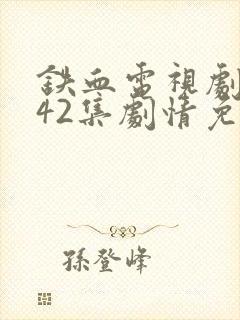 鉄血電視劇
42集劇情免
孫登峰